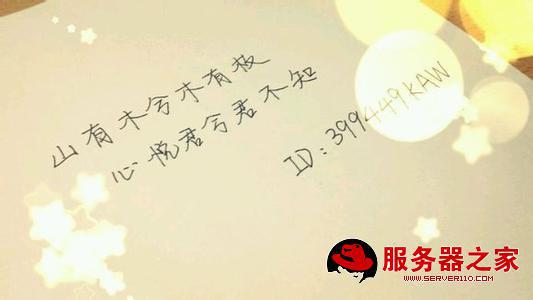 山有木兮木有枝
心悦君兮君不知
ID:399449KAW
服务器之家
WWW.SERVER110.COM